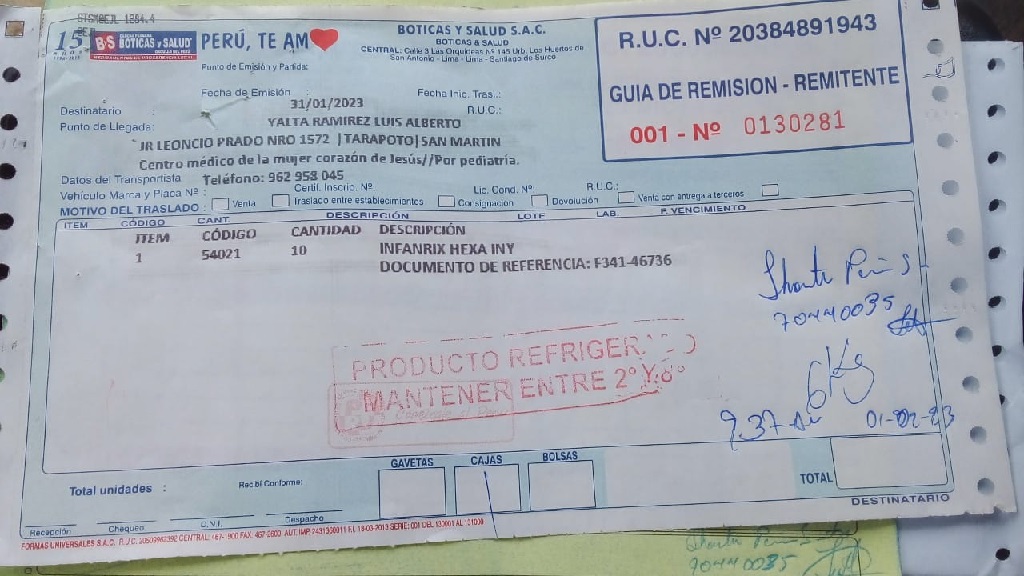 15
B·S BOTICAS Y SALUD
PERÚ, TE AM
BOTICAS Y SALUD S.A.C.
BOTICAS & SALUD
CENTRAL: Calle 3 Las Orquídeas Nº 145 Urb. Los Huertos de
San Antonio - Lima - Lima - Santiago de Surco
R.U.C. Nº 20384891943
GUIA DE REMISION - REMITENTE
001 - Nº 0130281
Punto de Emisión y Partida:
Fecha de Emisión : Fecha Inic. Tras.:
31/01/2023
Destinatario R.U.C.:
YALTA RAMIREZ LUIS ALBERTO
Punto de Llegada:
JR LEONCIO PRADO NRO 1572 |TARAPOTO|SAN MARTIN
Centro médico de la mujer corazón de Jesús//Por pediatría.
Datos del Transportista Teléfono: 962 958 045
Vehículo Marca y Placa Nº : Certif. Inscric. Nº Lic. Cond. Nº R.U.C.:
MOTIVO DEL TRASLADO : Venta Traslado entre establecimientos Consignación Devolución Venta con entrega a terceros
ITEM CÓDIGO CANT. DESCRIPCIÓN LOTE LAB. F. VENCIMIENTO
ITEM CÓDIGO CANTIDAD DESCRIPCIÓN
1 54021 10 INFANRIX HEXA INY
DOCUMENTO DE REFERENCIA: F341-46736
70440035
PRODUCTO REFRIGER
MANTENER ENTRE 2° Y 8°
6Kg
9.37
01-02-23
GAVETAS CAJAS BOLSAS
Total unidades : Recibí Conforme:
TOTAL
DESTINATARIO
Recepción Chequeo Q.V.F. Despacho
FORMAS UNIVERSALES S.A.C.
70440035